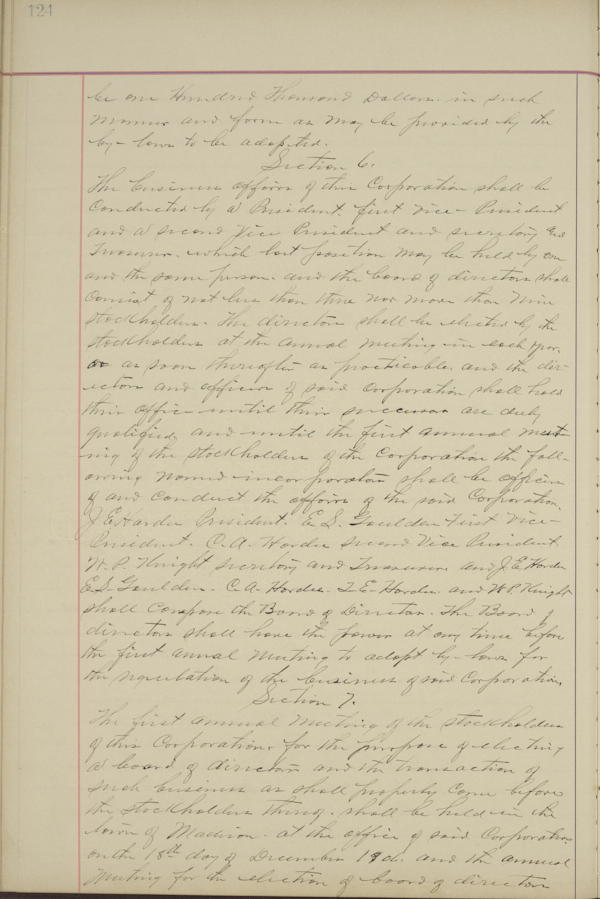 124
be one Hundred Thousand Dollars. in such
manner and form as may be provided by the
by-laws to be adopted.
Section 6.
The business affairs of this Corporation shall be
Conducted by a President. first Vice-President
and a second Vice President and secretary and
Treasurer. which last position may be held by one
and the same person. and the board of directors shall
Consist of not less than three nor more than nine
stockholders. The directors shall be elected by the
stockholders at the annual meeting in each year.
or as soon thereafter as practicable, and the dir-
ectors and officers of said Corporation shall hold
their office until their successors are duly
qualified, and until the first annual meet-
ing of the stockholders of the Corporation the foll-
owing named incorporators shall be officers
of and conduct the affairs of the said Corporation.
J.E. Hardee President. E.S. Gaulden First Vice-
President. C.A. Hardee second Vice President
W.P. Knight secretary and Treasurer and J.E. Hardee
E.S. Gaulden. C.A. Hardee. T.E. Hardee. and W.P. Knight
shall Compose the Board of Directors. The Board of
directors shall have the power at any time before
the first annual meeting to adopt by-laws for
the regulation of the business of said Corporation.
Section 7.
The first annual meeting of the stockholders
of this Corporation for the purpose of electing
a board of directors and the transaction of
such business as shall properly come before
the stockholders shall be held in the
town of Madison. at the office of said Corporation
on the 18th day of December and the annual
meeting for the election of board of directors